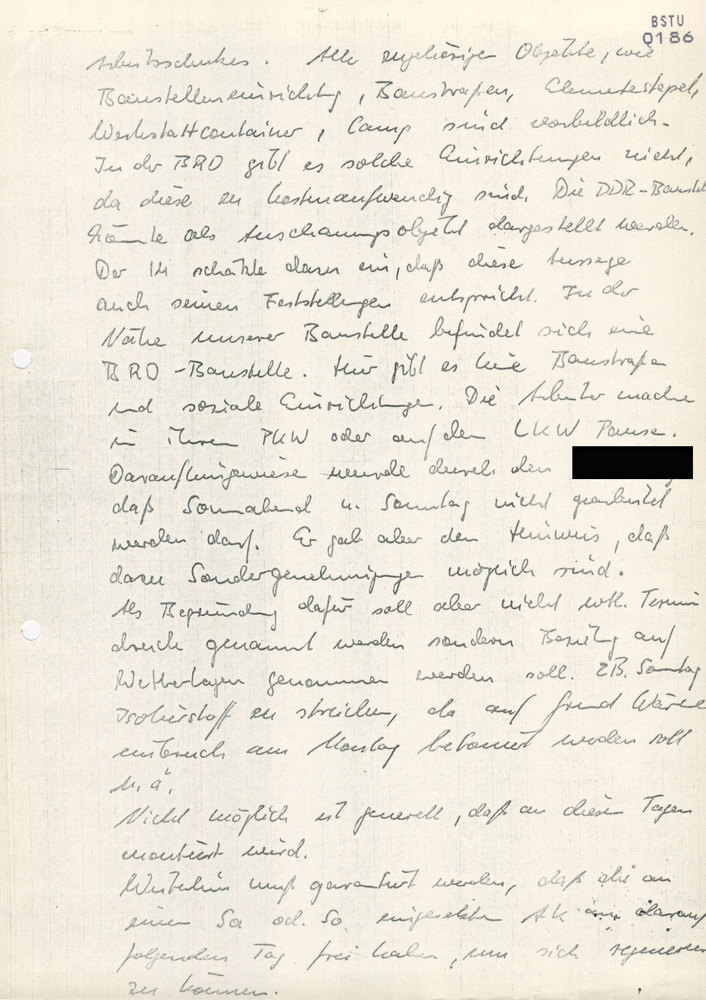 BSTU
0186
Arbeitsschutzes. Alle zugehörigen Objekte, wie
Baustelleneinrichtung, Baustraßen, Elementestapel,
Werkstattcontainer, Camp sind vorbildlich.
In der BRD gibt es solche Einrichtungen nicht,
da diese zu kostenaufwendig sind. Die DDR-Baustel
könnte als Anschauungsobjekt dargestellt werden.
Der IM schätzte dazu ein, daß diese Aussage
auch seinen Feststellungen entspricht. In der
Nähe unserer Baustelle befindet sich eine
BRD-Baustelle. Hier gibt es keine Baustraßen
und soziale Einrichtungen. Die Arbeiter machen
in ihren PKW oder auf dem LKW Pause.
Daraufhingewiesen wurde durch den
daß Sonnabend u. Sonntag nicht gearbeitet
werden darf. Er gab aber den Hinweis, daß
dazu Sondergenehmigungen möglich sind.
Als Begründung dafür soll aber nicht Termin
druck genannt werden sondern Bezug auf
Wetterlagen genommen werden soll. ZB. Sonntag
Isolierstoff zu streichen, da auf Grund Wärme
einbruch am Montag betoniert werden soll
u. ä.
Nicht möglich ist generell, daß an diesen Tagen
montiert wird.
Weiterhin muß garantiert werden, daß die an
einem Sa od. So eingesetzten AK am darauf
folgenden Tag frei haben, um sich regenerieren
zu können.